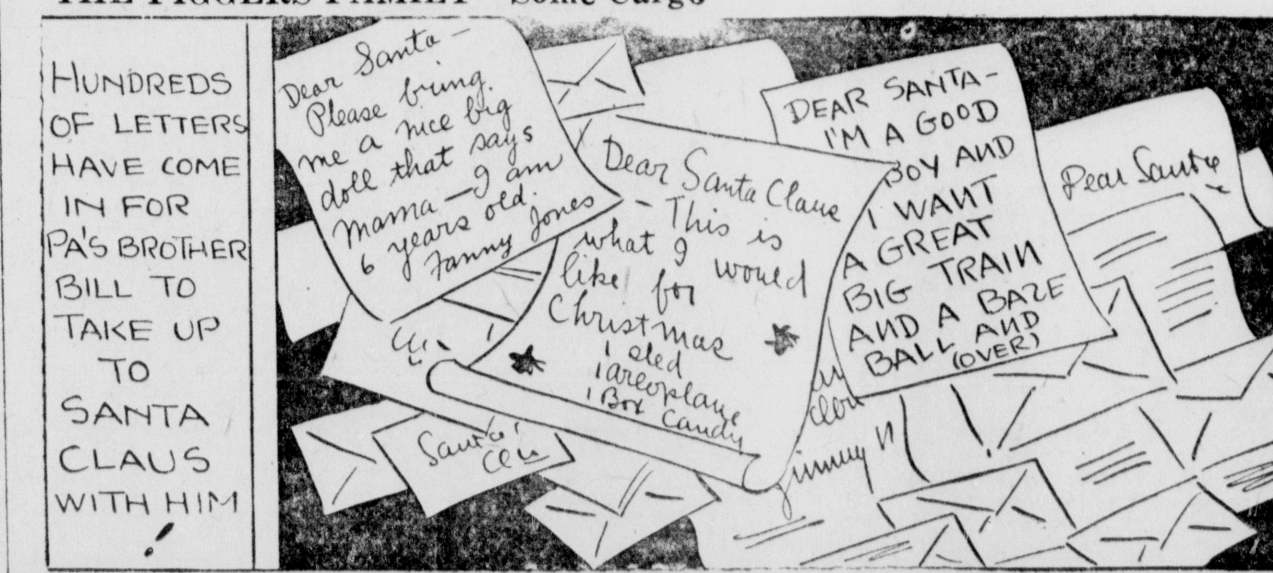 THE PIGGERS FAMILY Some Cargo
HUNDREDS
OF LETTERS
HAVE COME
IN FOR
PA'S BROTHER
BILL TO
TAKE UP
TO
SANTA
CLAUS
WITH HIM
!
Dear Santa—
Please bring
me a nice big
doll that says
mama—I am
6 years old.
Fanny Jones
Dear Santa Claus
- This is
what I would
like for
Christmas
1 sled
1 areoplane
1 Box Candy
DEAR SANTA-
I'M A GOOD
BOY AND
I WANT
A GREAT
BIG TRAIN
AND A BAZE
BALL AND
(OVER)
Dear
Santa
Jimmy